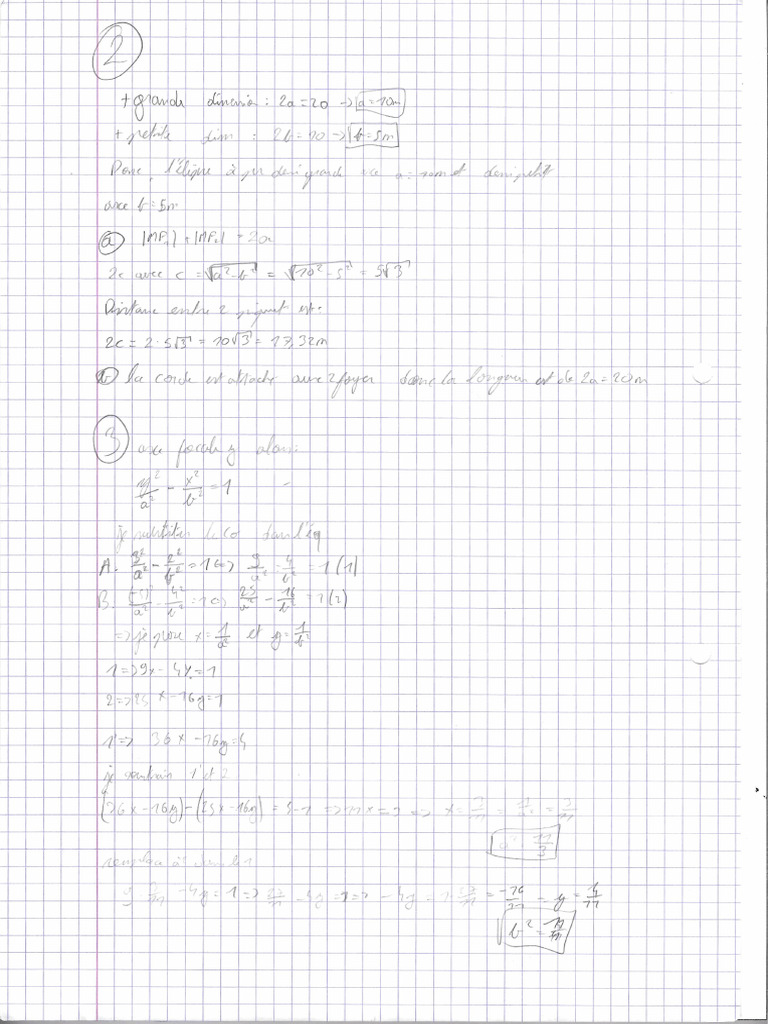 2
+ grande dimension : 2a = 20 → a = 10m
+ petite dim : 2b = 10 → b = 5m
Donc, l'élipse à pr demi grande axe a = 10m et demi petit
axe b = 5m
a) |MF₁| + |MF₂| = 2a
2c avec c = √(a² - b²) = √(10² - 5²) = 5√3
Distance entre 2 piquet est :
2c = 2 · 5√3 = 10√3 = 17,32m
b) la corde est attaché aux 2 foyer donc la longueur est de 2a = 20m
3
axe focale y alors :
y²/a² - x²/b² = 1
je substitue le co dans l'éq
A. 3²/a² - 2²/b² = 1 <=> 9/a² - 4/b² = 1 (1)
B. (-5)²/a² - 4²/b² = 1 <=> 25/a² - 16/b² = 1 (2)
=> je pose x = 1/a² et y = 1/b²
1 => 9x - 4y = 1
2 => 25x - 16y = 1
1' => 36x - 16y = 4
je soustrais 1' et 2
(36x - 16y) - (25x - 16y) = 4-1 => 11x = 3 => x = 3/11 = 1/a² = 3/11
a² = 11/3
remplace
9 · 3/11 - 4y = 1 => 27/11 - 4y = 1 => - 4y = 1 - 27/11 = -16/11 - y = 4/11
b² = 11/